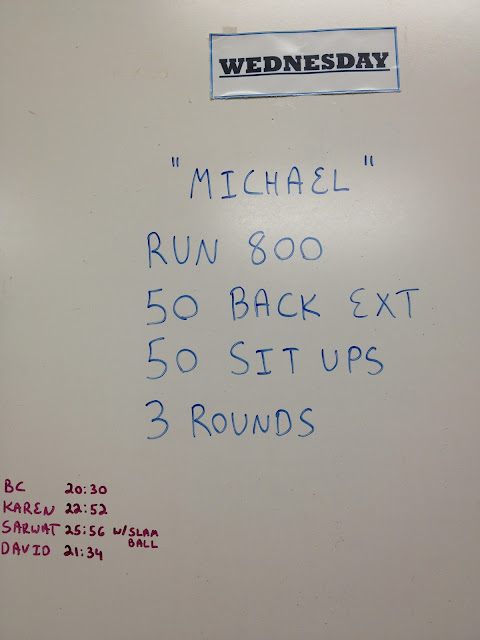 WEDNESDAY
"MICHAEL"
RUN 800
50 BACK EXT
50 SIT UPS
3 ROUNDS
BC 20:30
KAREN 22:52
SARWAT 25:56 W/SLAM BALL
DAVID 21:34